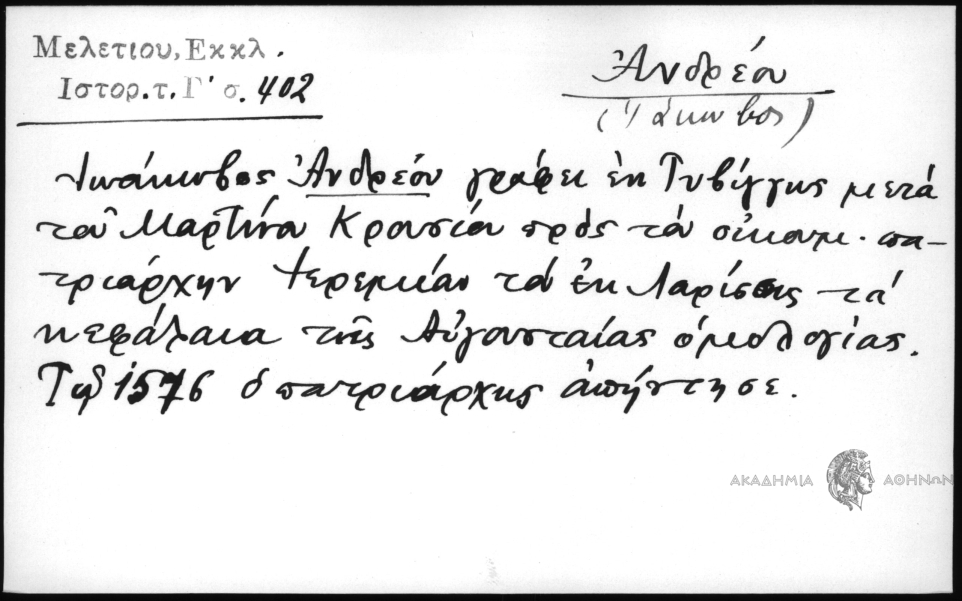 Μελετιου, Εκκλ.
Ιστορ. τ. Γ' σ. 402
Ἀνδρέου
(Ἰάκωβος)
Ἰωάκωβος Ἀνδρέου γράφει ἐκ Τυβίγγης μετὰ
τοῦ Μαρτίνου Κρουσίου πρὸς τὸν οἰκουμ. πα-
τριάρχην Ἱερεμίαν τὸν ἐκ Λαρίσσης τὰ
κεφάλαια τῆς Αὐγουσταίας ὁμολογίας.
Τῷ 1576 ὁ πατριάρχης ἀπήντησε.
ΑΚΑΔΗΜΙΑ ΑΘΗΝΩΝ